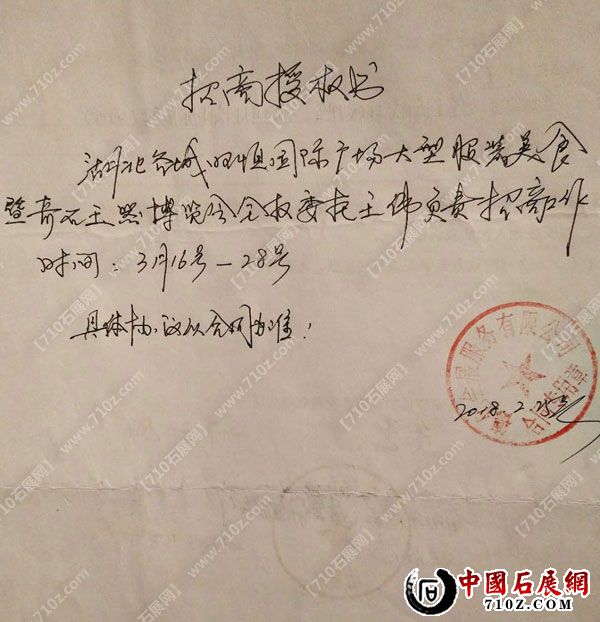 招商授权书
湖北谷城旺恒国际广场大型服装美食
暨奇石玉器博览会全权委托王伟负责招商工作
时间：3月16号—28号
具体协议以合同为准！
会展服务有限公司
合同专用章
2018.2.25号
【710石展网】www.710z.com
中國石展網
710Z.COM